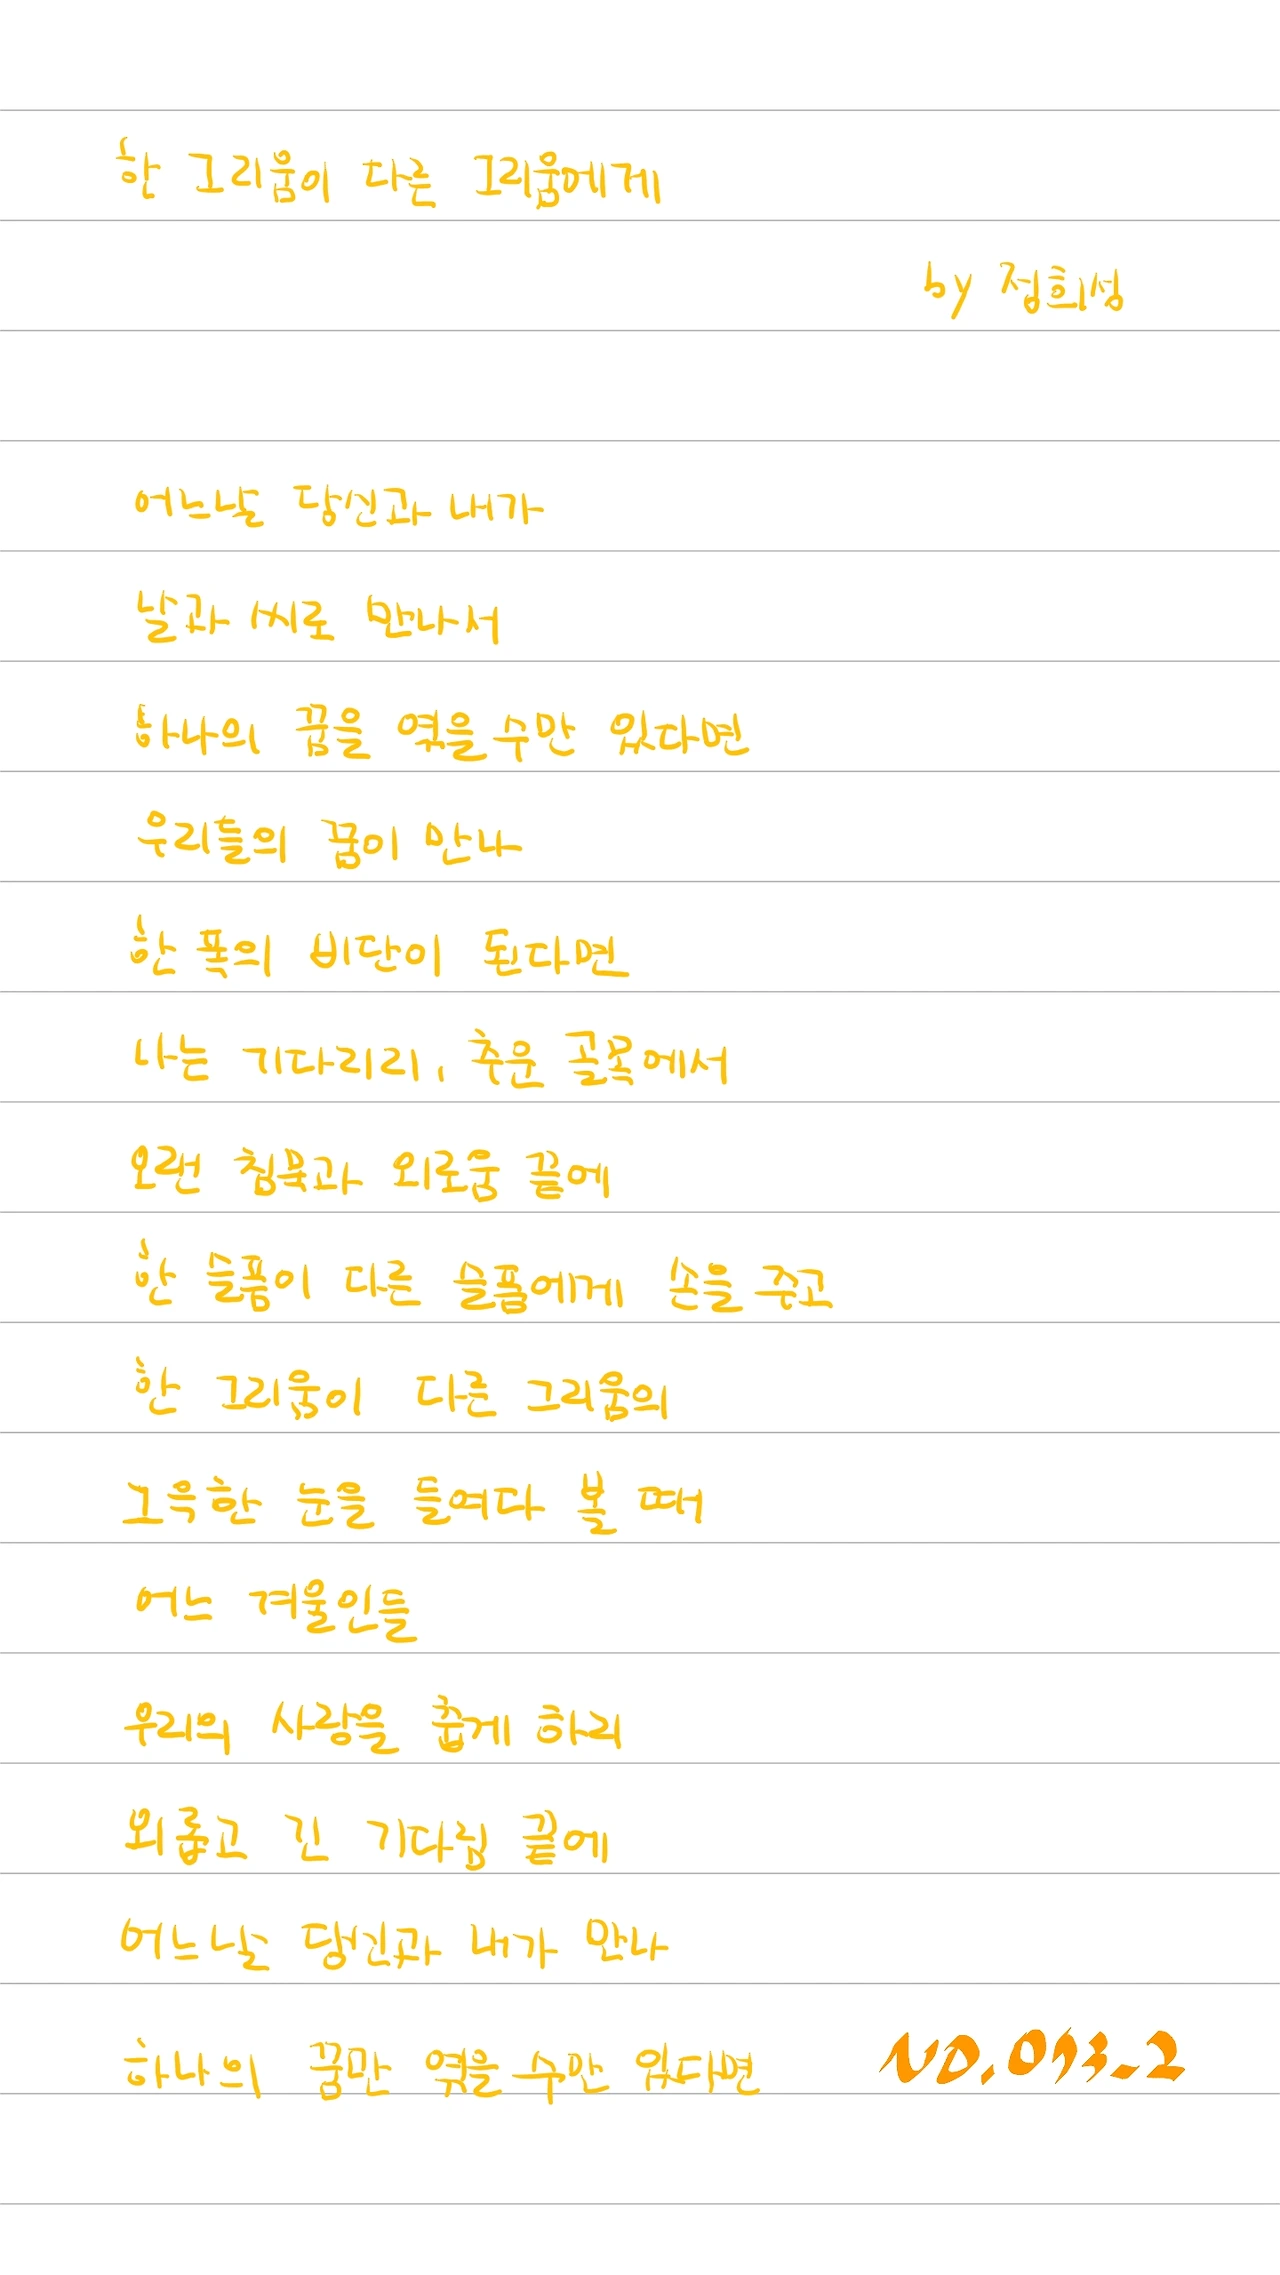 한 그리움이 다른 그리움에게
by 정희성
어느날 당신과 내가
날과 씨로 만나서
하나의 꿈을 엮을 수만 있다면
우리들의 꿈이 만나
한 폭의 비단이 된다면
나는 기다리리, 추운 골목에서
오랜 침묵과 외로움 끝에
한 슬픔이 다른 슬픔에게 손을 주고
한 그리움이 다른 그리움의
그윽한 눈을 들여다 볼 때
어느 겨울인들
우리의 사랑을 춥게 하리
외롭고 긴 기다림 끝에
어느날 당신과 내가 만나
하나의 꿈만 엮을 수만 있다면
NO.093-2